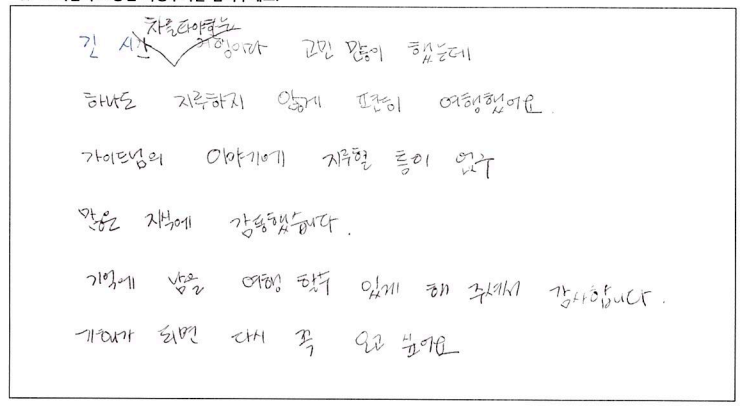 긴 시간 차를 타야하는 여행이라 고민 많이 했는데
하나도 지루하지 않게 편히 여행했어요.
가이드님의 이야기에 지루할 틈이 없구
많은 지식에 감동했습니다.
기억에 남을 여행 할수 있게 해 주셔서 감사합니다.
기회가 되면 다시 꼭 오고 싶어요